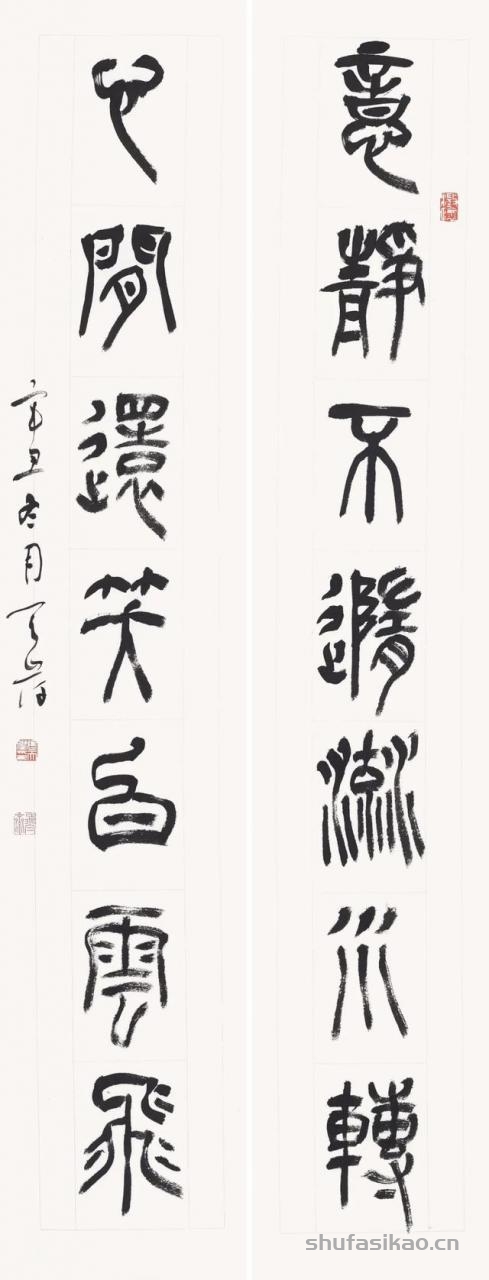 意靜不隨流水轉
心閒還笑白雲飛
辛丑冬月
shufasikao.cn